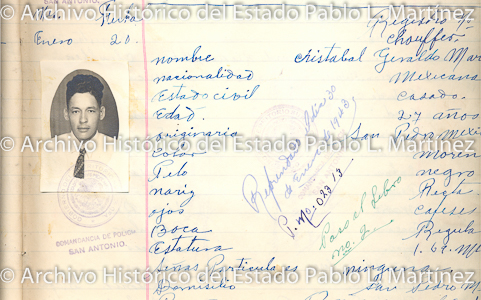 © Archivo Histórico del Estado Pablo L. Martínez
SAN ANTONIO.
Registro No
Chouffer.
Enero 20.
nombre Cristobal Geraldo Mar
nacionalidad Mexicana
Estado civil Casado.
Edad. 27 años
originario San Pedro Mexi
Color Moren
Pelo negro
nariz Recta
ojos cafeses
Boca Regula
Estatura 1.67 M
Señas Particulares ninguna
Domicilio San Pedro M
Refrendado el dia 20
de Enero de 1948
Paso al Libro
No. 2
COMANDANCIA DE POLICIA
SAN ANTONIO.
© Archivo Histórico del Estado Pablo L. Martínez
© Archivo Histórico del Estado Pablo L. Martínez